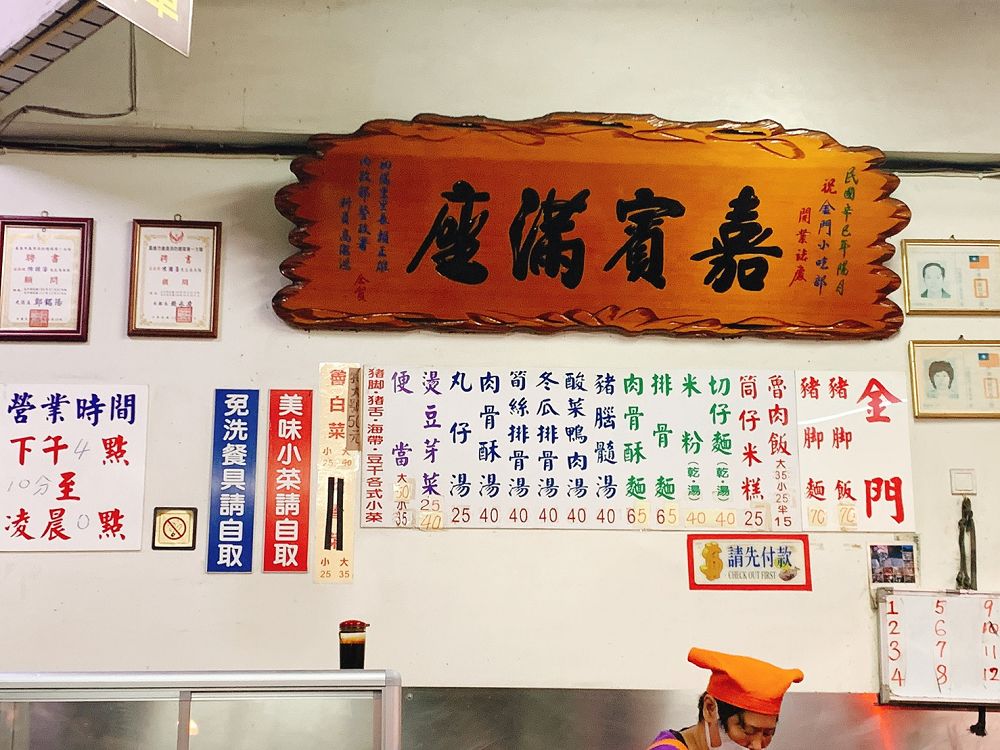 嘉賓滿座
民國辛巳年陽月
祝金門小吃部
開業誌慶
內政部警政署
仝賀
聘書
顧問
聘書
顧問
營業時間
下午4點
10分至
凌晨0點
免洗餐具請自取
美味小菜請自取
魯白菜
小 大
25 35
金門
豬脚飯 70
豬脚麵 70
魯肉飯 大35小25半15
筒仔米糕 25
切仔麵(乾·湯) 40
米粉(乾·湯) 40
排骨麵 65
肉骨酥麵 65
豬腦髓湯 40
酸菜鴨肉湯 40
冬瓜排骨湯 40
筍絲排骨湯 40
肉骨酥湯 40
丸仔湯 25
燙豆芽菜 25 40
便當 大50小35
豬脚·豬舌·海帶·豆干各式小菜
請先付款
CHECK OUT FIRST
1 5 9
2 6 10
3 7 11
4 8 12